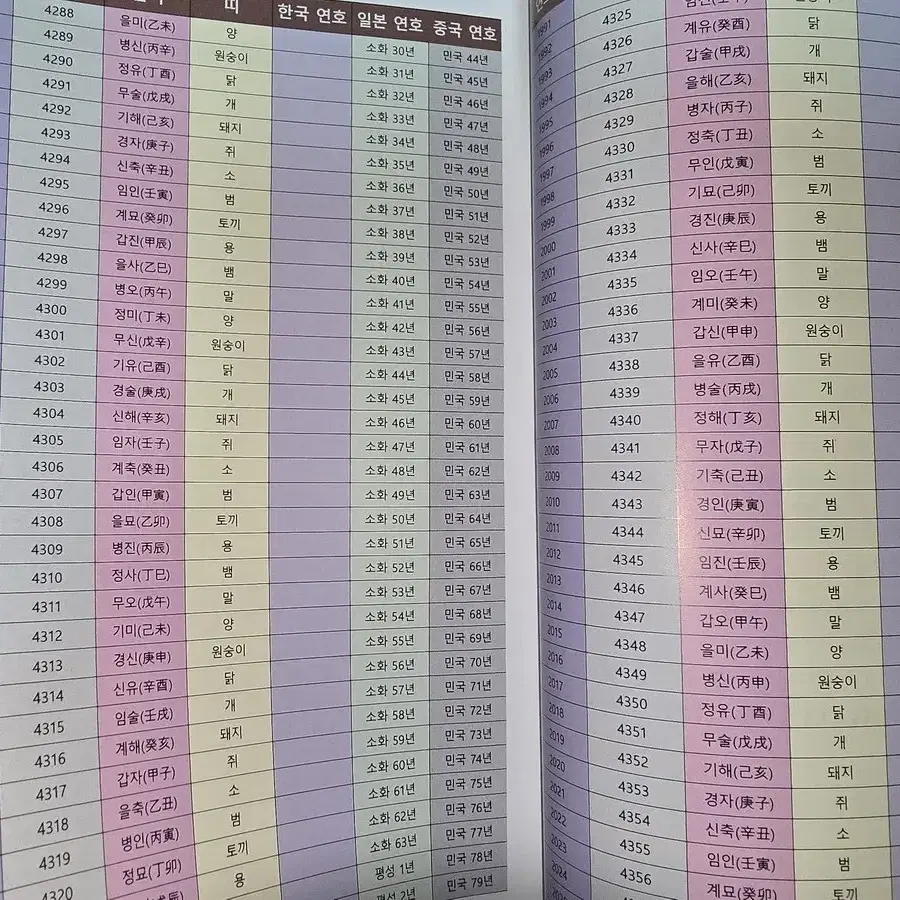 띠 한국 연호 일본 연호 중국 연호
4288 을미(乙未) 양 소화 30년 민국 44년
4289 병신(丙辛) 원숭이 소화 31년 민국 45년
4290 정유(丁酉) 닭 소화 32년 민국 46년
4291 무술(戊戌) 개 소화 33년 민국 47년
4292 기해(己亥) 돼지 소화 34년 민국 48년
4293 경자(庚子) 쥐 소화 35년 민국 49년
4294 신축(辛丑) 소 소화 36년 민국 50년
4295 임인(壬寅) 범 소화 37년 민국 51년
4296 계묘(癸卯) 토끼 소화 38년 민국 52년
4297 갑진(甲辰) 용 소화 39년 민국 53년
4298 을사(乙巳) 뱀 소화 40년 민국 54년
4299 병오(丙午) 말 소화 41년 민국 55년
4300 정미(丁未) 양 소화 42년 민국 56년
4301 무신(戊辛) 원숭이 소화 43년 민국 57년
4302 기유(己酉) 닭 소화 44년 민국 58년
4303 경술(庚戌) 개 소화 45년 민국 59년
4304 신해(辛亥) 돼지 소화 46년 민국 60년
4305 임자(壬子) 쥐 소화 47년 민국 61년
4306 계축(癸丑) 소 소화 48년 민국 62년
4307 갑인(甲寅) 범 소화 49년 민국 63년
4308 을묘(乙卯) 토끼 소화 50년 민국 64년
4309 병진(丙辰) 용 소화 51년 민국 65년
4310 정사(丁巳) 뱀 소화 52년 민국 66년
4311 무오(戊午) 말 소화 53년 민국 67년
4312 기미(己未) 양 소화 54년 민국 68년
4313 경신(庚申) 원숭이 소화 55년 민국 69년
4314 신유(辛酉) 닭 소화 56년 민국 70년
4315 임술(壬戌) 개 소화 57년 민국 71년
4316 계해(癸亥) 돼지 소화 58년 민국 72년
4317 갑자(甲子) 쥐 소화 59년 민국 73년
4318 을축(乙丑) 소 소화 60년 민국 74년
4319 병인(丙寅) 범 소화 61년 민국 75년
4320 정묘(丁卯) 토끼 소화 62년 민국 76년
용 소화 63년 민국 77년
평성 1년 민국 78년
평성 2년 민국 79년
1991
1992 4325 계유(癸酉) 닭
1993 4326 갑술(甲戌) 개
1994 4327 을해(乙亥) 돼지
1995 4328 병자(丙子) 쥐
1996 4329 정축(丁丑) 소
1997 4330 무인(戊寅) 범
1998 4331 기묘(己卯) 토끼
1999 4332 경진(庚辰) 용
2000 4333 신사(辛巳) 뱀
2001 4334 임오(壬午) 말
2002 4335 계미(癸未) 양
2003 4336 갑신(甲申) 원숭이
2004 4337 을유(乙酉) 닭
2005 4338 병술(丙戌) 개
2006 4339 정해(丁亥) 돼지
2007 4340 무자(戊子) 쥐
2008 4341 기축(己丑) 소
2009 4342 경인(庚寅) 범
2010 4343 신묘(辛卯) 토끼
2011 4344 임진(壬辰) 용
2012 4345 계사(癸巳) 뱀
2013 4346 갑오(甲午) 말
2014 4347 을미(乙未) 양
2015 4348 병신(丙申) 원숭이
2016 4349 정유(丁酉) 닭
2017 4350 무술(戊戌) 개
2018 4351 기해(己亥) 돼지
2019 4352 경자(庚子) 쥐
2020 4353 신축(辛丑) 소
2021 4354 임인(壬寅) 범
2022 4355 계묘(癸卯) 토끼
2023 4356
2024